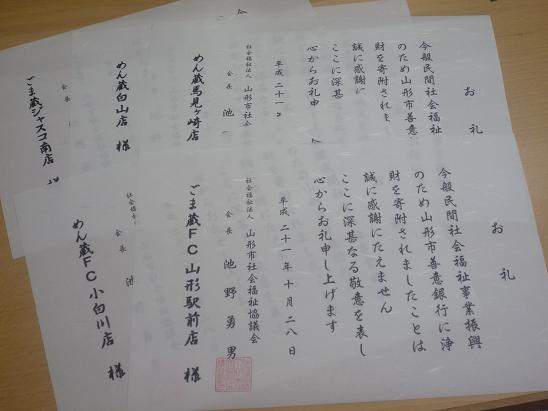 お礼
今般民間社会福祉事業振興
のため山形市善意銀行に浄
財を寄附されましたことは
誠に感謝にたえません
ここに深甚なる敬意を表し
心からお礼申し上げます
平成二十一年十月二八日
社会福祉法人 山形市社会福祉協議会
会長 池野勇男
ごま蔵FC山形駅前店 様
会長
めん蔵FC小白川店 様
お礼
今般民間社会福祉
のため山形市善意
財を寄附されま
誠に感謝に
ここに深甚
心からお礼申
平成二十一
社会福祉法人 山形市社会
会長 池
めん蔵馬見ヶ崎店
会長
めん蔵白山店 様
会長
ごま蔵ジャスコ南店